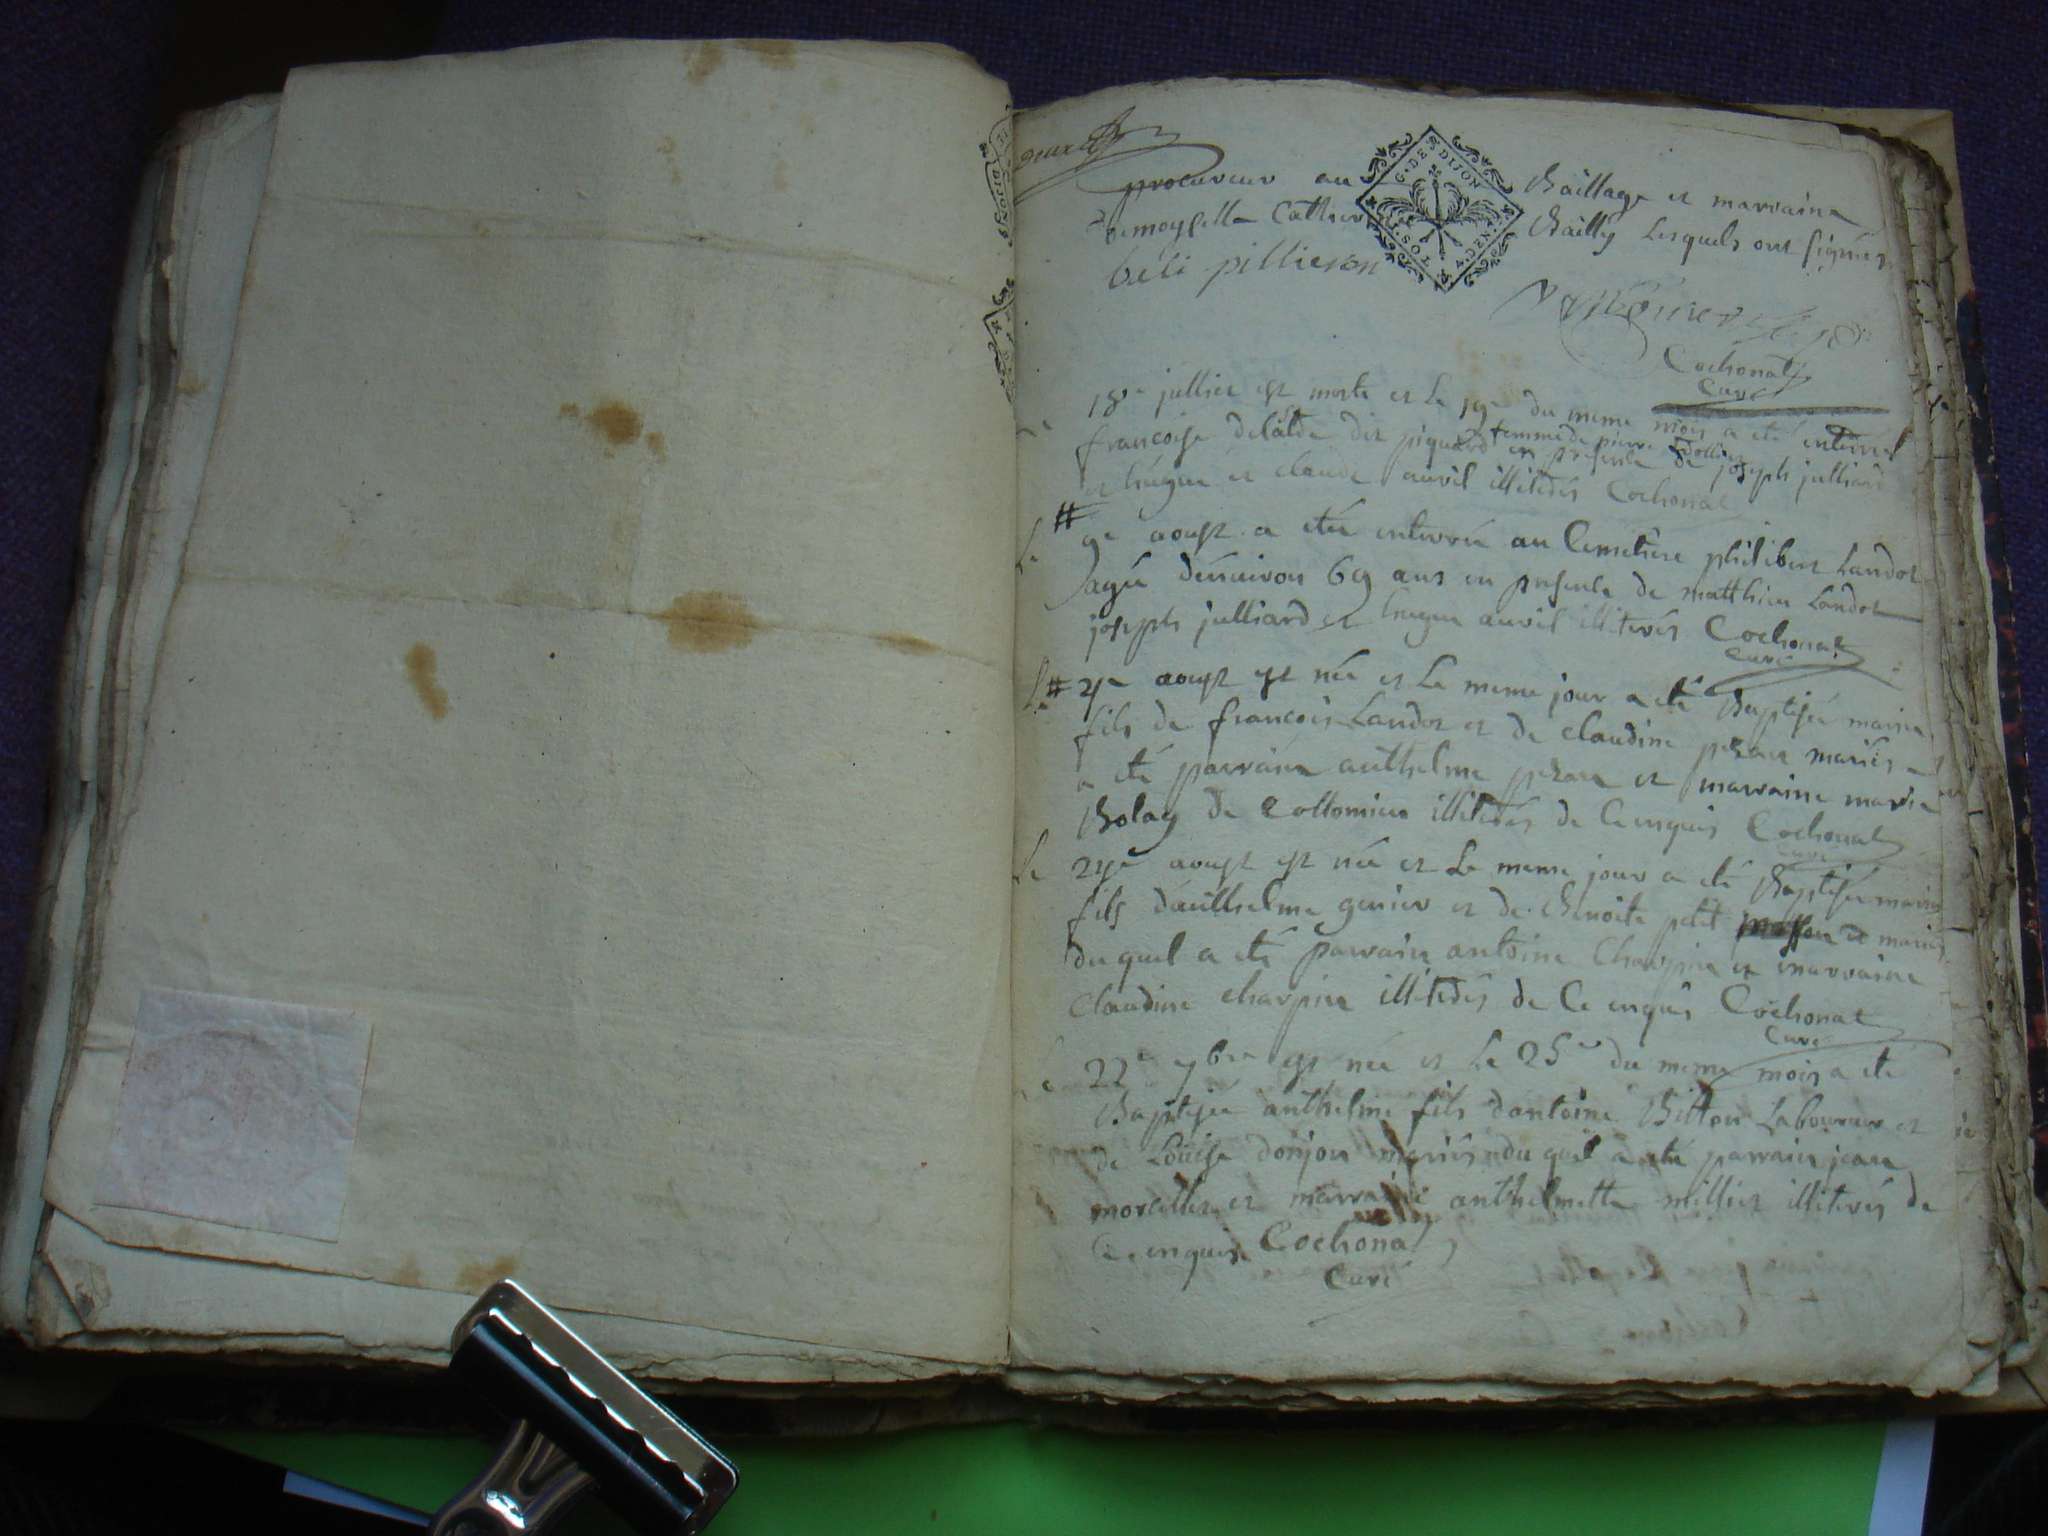 procureur au Baillage et marraine
Demoyselle Catherine Bailly Lesquels ont signés
G. DE DIJON 4 DEN. 2 SOLS
béli pillieron
Cochonat
Curé
18e juillet est morte et Le 19e du meme mois a eté enterré
francoise delalde dit piquard femme de pierre en presence de joseph julliard
et hugue et claude auvil illiterés Cochonat
Le # 9e aoust a etée enterrée au Cemetiere philibert Landot
agée d'énuiron 69 ans en presence de matthieu Landot
joseph julliard et hugue auvil illiterés Cochonat
Curé
Le # 21e aoust est née et Le meme jour a eté Baptisée marie
fils de francois Landot et de Claudine pezan mariés
a eté parrain anthelme pezan et marraine marie
Bolay de Collomieu illiterés de Ce enquis Cochonat
Curé
Le 21e aoust est née et Le meme jour a eté Baptisée marie
fils d'anthelme genier et de Benoite petit mariés
du quel a eté parrain antoine Charpin et marraine
Claudine charpin illiterés de Ce enquis Cochonat
Curé
Le 22e 7bre est née et Le 25e du meme mois a eté
Baptisée anthelme fils d'antoine Billon Laboureur et
de Louise donjon mariés du quel a eté parrain jean
morcellet et marraine anthelmette milliet illiterés de
Ce enquis Cochonat
Curé